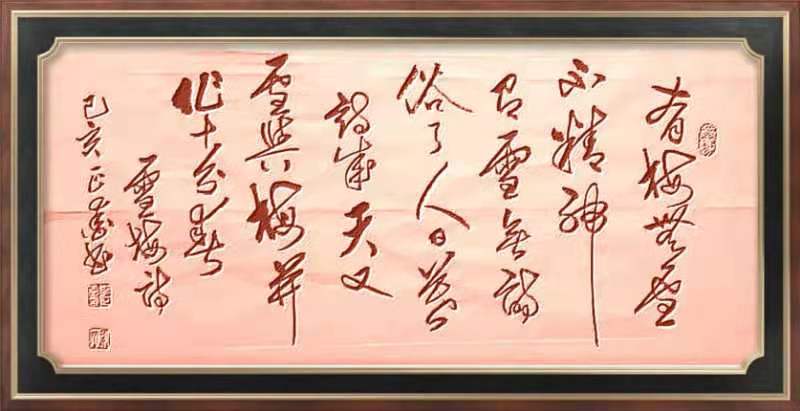 有梅無雪
不精神
有雪無詩
俗了人日暮
詩成天又
雪與梅并
作十分春
雪梅詩
己亥正